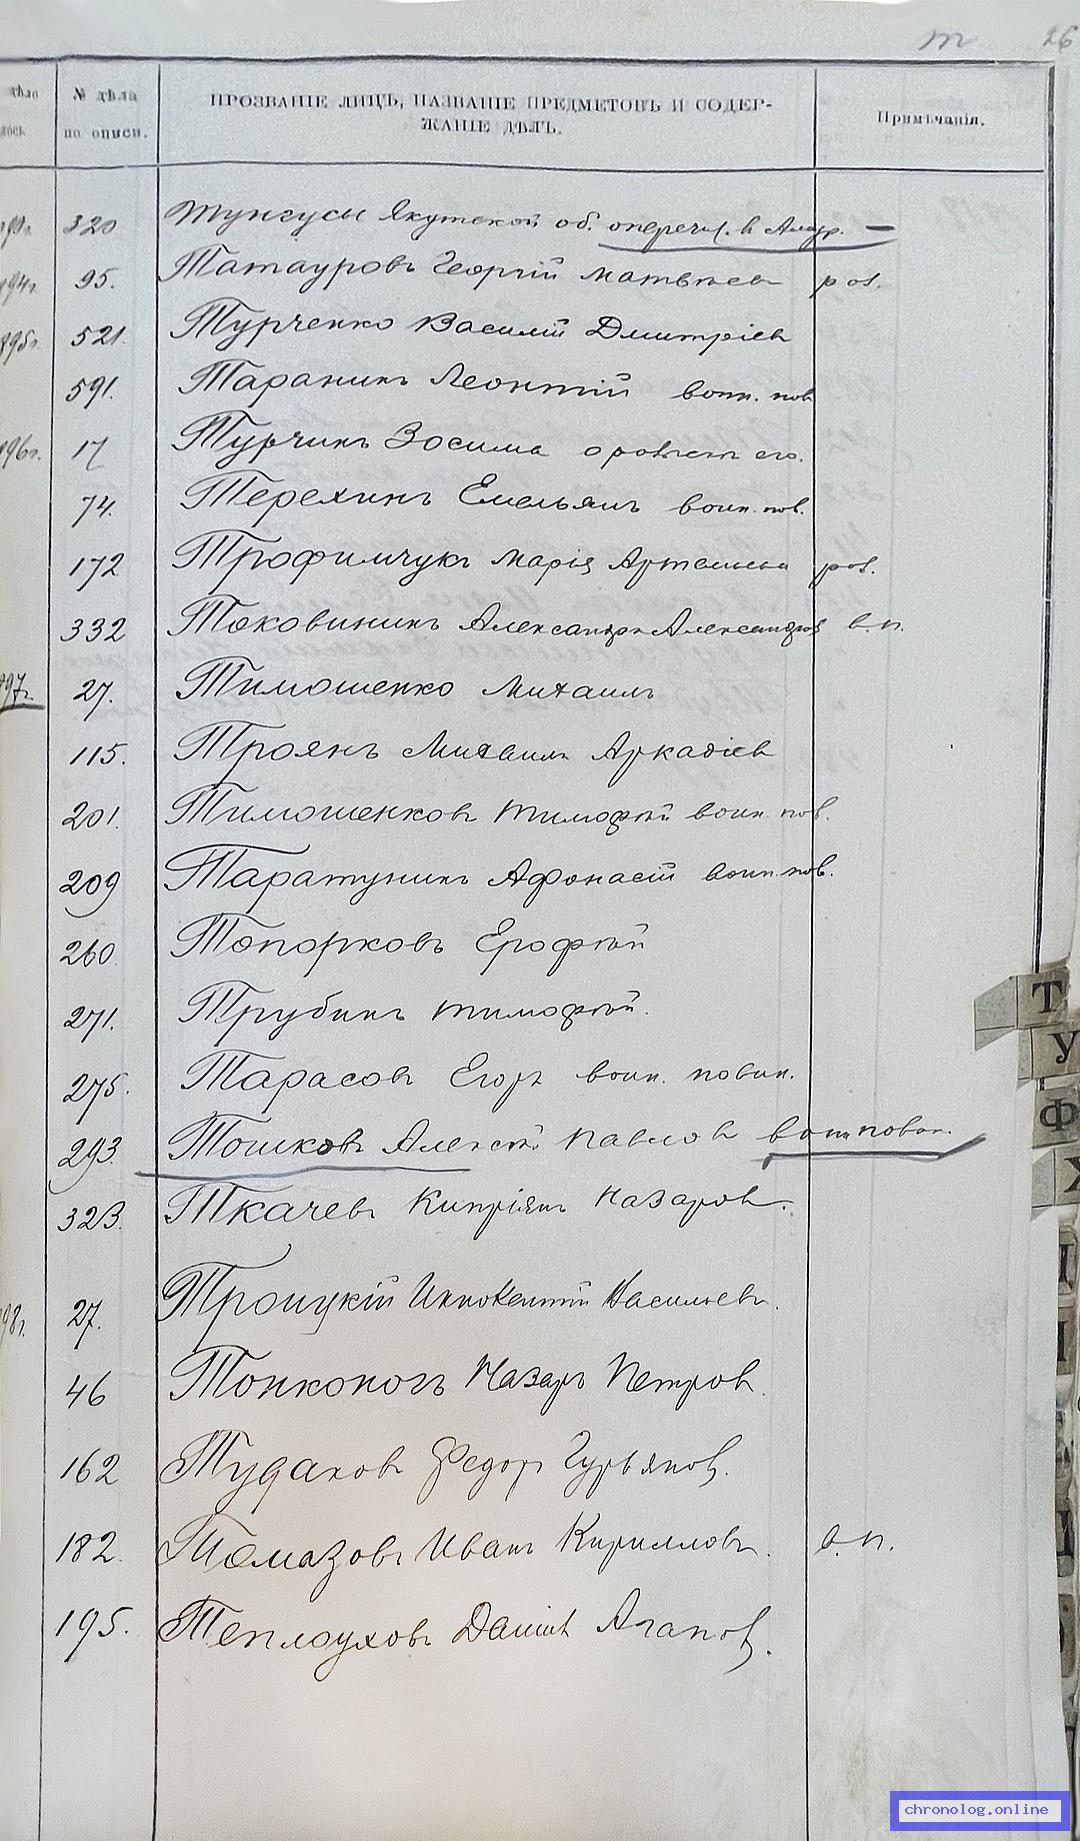 т 26
№ дѣла по описи.
ПРОЗВАНІЕ ЛИЦЪ, НАЗВАНІЕ ПРЕДМЕТОВЪ И СОДЕР-
ЖАНІЕ ДѢЛЪ.
Примѣчанія.
320 Тунгусы Якутской об. о перечи. в Амур. —
94г. 95. Татауровъ Георгій Матвѣев роз.
895г. 521. Турченко Василій Дмитріев
591. Тараникъ Леонтій воин. пов
96г. 17 Турчинъ Зосима о розыск его.
74. Терехинъ Емельянъ воин. пов.
172 Трофимчукъ Марія Артемьева роз.
332 Токовининъ Александръ Александров в.п.
97г. 27. Тимошенко Михаилъ
115. Троянъ Михаилъ Аркадіев
201. Тимошенковъ Тимофѣй воин пов.
209 Таратунинъ Афонасій воин. пов.
260. Топорковъ Ерофѣй
271. Трубинъ Тимофѣй.
275. Тарасовъ Егоръ воин. повин.
293. Тошковъ Алексѣй Павлов воин повин.
323. Ткачевъ Кипріянъ Назаров.
98г. 27. Троицкій Иннокентій Васильевъ.
46 Тонконогъ Назаръ Петров.
162 Тудаковъ Федоръ Гурьянов.
182. Томазовъ Иванъ Кирилловъ. в.п.
195. Теплоуховъ Данил Агапов.
Т
У
Ф
Х
chronolog.online